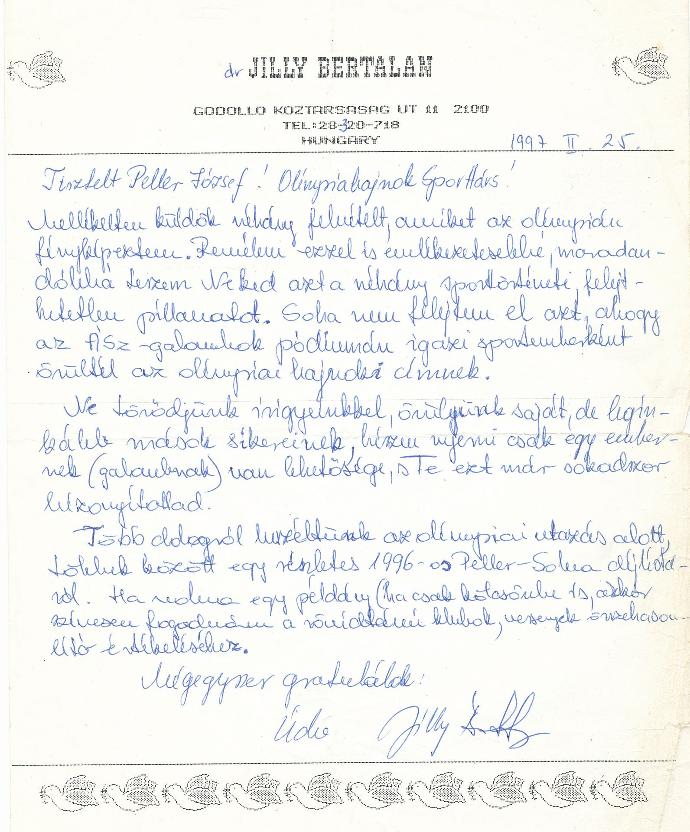 dr JILLY BERTALAN
GODOLLO KOZTARSASAG UT 11 2100
TEL:28-320-718
HUNGARY
1997 II. 25.
Tisztelt Peller József! Olimpiabajnok Sporttárs!
Mellékelten küldök néhány felvételt, amiket az olimpián
fényképeztem. Remélem ezzel is emlékezetesebbé, maradan-
dóbbá teszem Neked azt a néhány sporttörténeti, felejt-
hetetlen pillanatot. Soha nem felejtem el azt, ahogy
az ÁSz-galambok pódiumán igazi sportemberként
örültél az olimpiai bajnoki címnek.
Ne törődjünk irigyeinkkel, örüljünk saját, de legin-
kább mások sikereinek, hiszen nyerni csak egy ember-
nek (galambnak) van lehetősége, s Te ezt már sokadszor
bizonyítottad.
Több dologról beszéltünk az olimpiai utazás alatt,
többek között egy részletes 1996-os Peller-Solna díjlistá-
ról. Ha volna egy példány (ha csak kölcsönbe is, akkor
szívesen fogadnám a rövidtávú klubok, versenyek összehason-
lító értékeléséhez.
Mégegyszer gratulálok!
Üdv Jilly